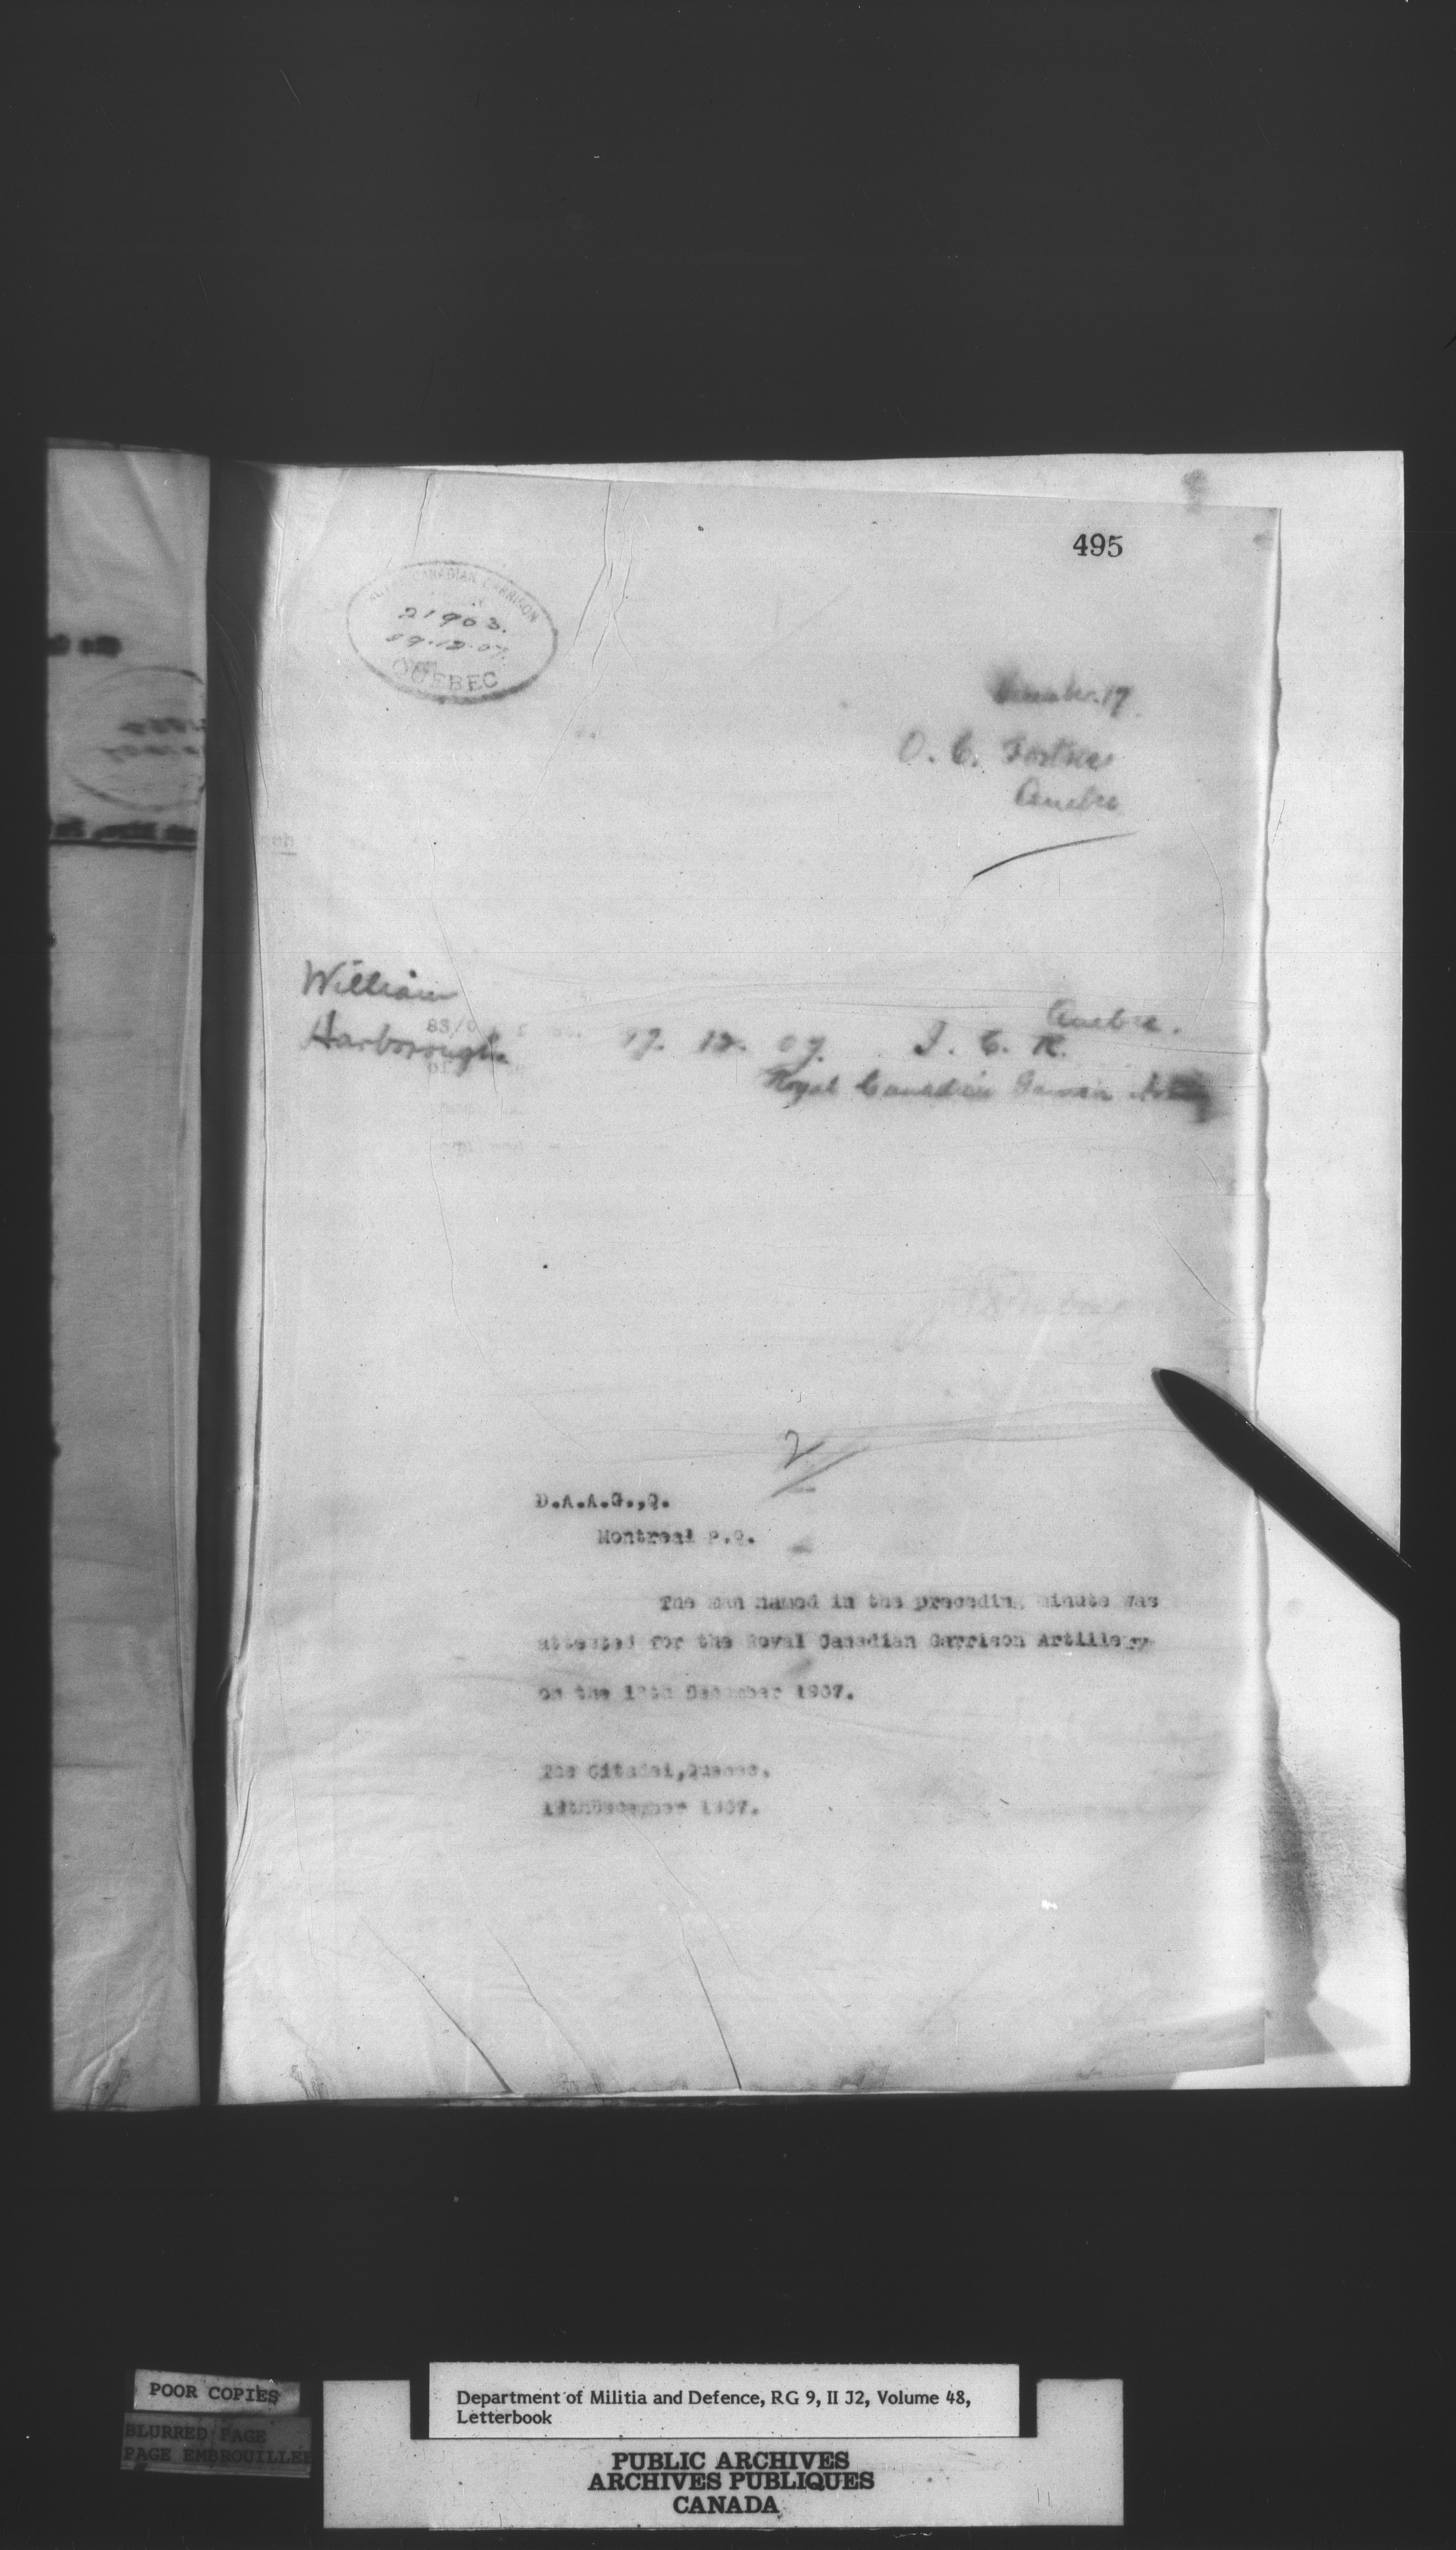 495
CANADIAN GARRISON
21903.
19.12.07.
QUEBEC
December. 17
O. C. Fortress
Quebec
William
Harborough
Quebec.
17. 12. 07. J. C. R.
Royal Canadian Garrison Artillery
2
D.A.A.G.,Q.
Montreal P.Q.
The man named in the preceding minute was
attested for the Royal Canadian Garrison Artillery
on the December 1907.
The Citadel,Quebec.
19thDecember 1907.
POOR COPIES
BLURRED PAGE
PAGE EMBROUILLEE
Department of Militia and Defence, RG 9, II J2, Volume 48,
Letterbook
PUBLIC ARCHIVES
ARCHIVES PUBLIQUES
CANADA